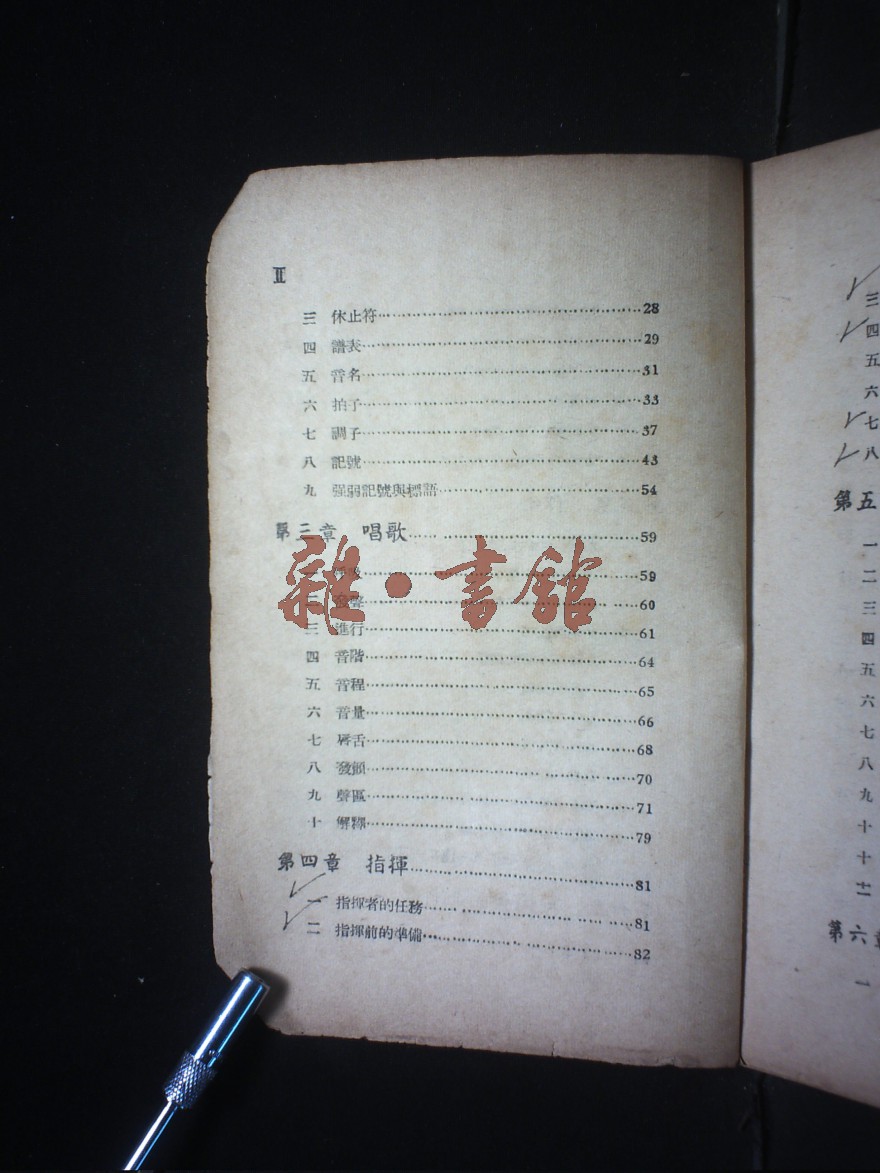 II
三 休止符 28
四 譜表 29
五 音名 31
六 拍子 33
七 調子 37
八 記號 43
九 强弱記號與標語 54
第三章 唱歌 59
一 呼吸 59
二 發聲 60
三 進行 61
四 音階 64
五 音程 65
六 音量 66
七 唇舌 68
八 發顫 70
九 聲區 71
十 解釋 79
第四章 指揮 81
一 指揮者的任務 81
二 指揮前的準備 82
雜·書館
三
四
五
六
七
八
第五
一
二
三
四
五
六
七
八
九
十
十一
十二
第六章
一